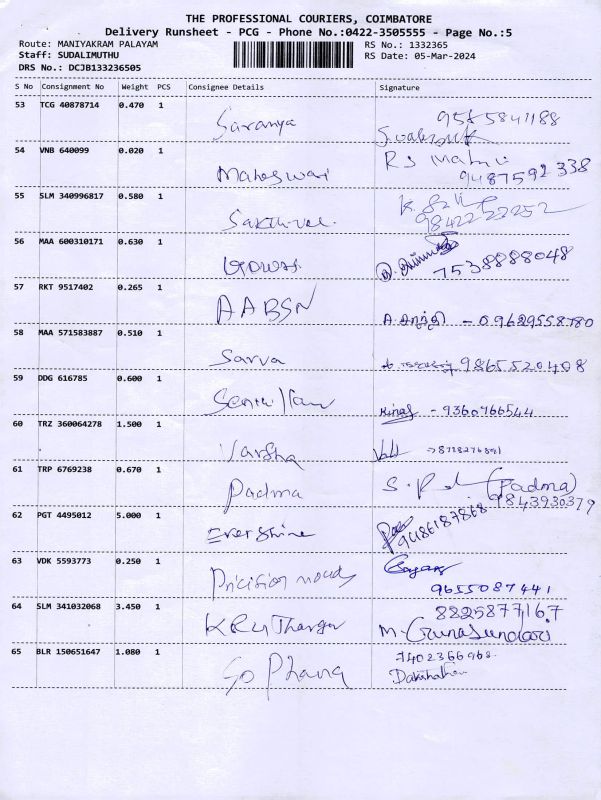 THE PROFESSIONAL COURIERS, COIMBATORE
Delivery Runsheet - PCG - Phone No.:0422-3505555 - Page No.:5
Route: MANIYAKRAM PALAYAM RS No.: 1332365
Staff: SUDALIMUTHU RS Date: 05-Mar-2024
DRS No.: DCJB133236505
S No Consignment No Weight PCS Consignee Details Signature
53 TCG 40878714 0.470 1
Saranya 9585841188
54 VNB 640099 0.020 1
Maheswari 9487592338
55 SLM 340996817 0.580 1
9842222252
56 MAA 600310171 0.630 1
7538888048
57 RKT 9517402 0.265 1
AABSN
A. - 09629558780
58 MAA 571583887 0.510 1
Sarva 9865520408
59 DDG 616785 0.600 1
- 9360766544
60 TRZ 360064278 1.500 1
Varsha
61 TRP 6769238 0.670 1
Padma (Padma)
9843930379
62 PGT 4495012 5.000 1
Evershine 9486187868
63 VDK 5593773 0.250 1
Pricision
9655087441
64 SLM 341032068 3.450 1
8825877167
M. Gunasundari
65 BLR 150651647 1.080 1
7402366968